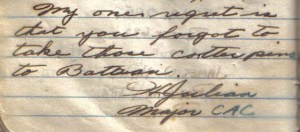 My one regret is
that you forgot to
take those cotter pins
to Bataan.
H Julian
Major CAC